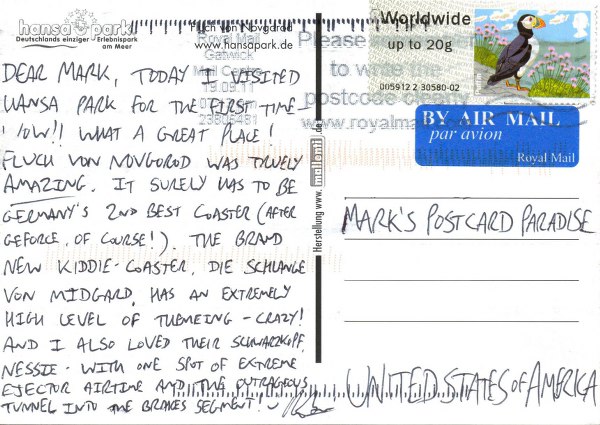 hansa park
Deutschlands einziger Erlebnispark
am Meer
Fluch von Novgorod
www.hansapark.de
Royal Mail
Gatwick
Mail Centre
19.09.11
23805481
Please
to write
postcode clearly
www.royalma
Worldwide
up to 20g
005912 2 30580-02
BY AIR MAIL
par avion
Royal Mail
DEAR MARK, TODAY I VISITED
HANSA PARK FOR THE FIRST TIME
WOW!! WHAT A GREAT PLACE!
FLUCH VON NOVGOROD WAS TRUELY
AMAZING. IT SURELY HAS TO BE
GERMANY'S 2ND BEST COASTER (AFTER
GEFORCE, OF COURSE!). THE BRAND
NEW KIDDIE-COASTER, DIE SCHLANGE
VON MIDGARD, HAS AN EXTREMELY
HIGH LEVEL OF THEMEING - CRAZY!
AND I ALSO LOVED THEIR SCHWARZKOPF,
NESSIE - WITH ONE SPOT OF EXTREME
EJECTOR AIRTIME AND THE OUTRAGEOUS
TUNNEL INTO THE BRAKES SEGMENT!
Herstellung www. .de
MARK'S POSTCARD PARADISE
UNITED STATES OF AMERICA